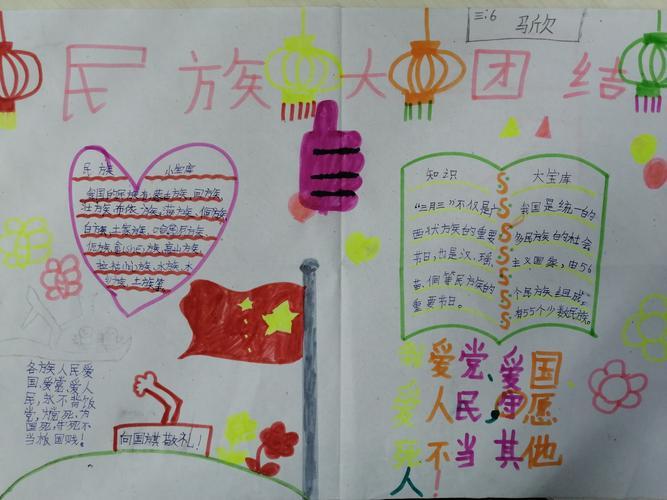 三:6
马欣
民族大团结
民族 小宝库
我国的民族有:蒙古族、回族、
壮族、布依族、满族、侗族、
白族、土家族、哈尼
族、高山族、
族、水族、
族、土族等
知识
"三月三"不仅是广
西壮族的重要
节日,也是汉、瑶、
苗、侗等民族的
重要节日。
大宝库
我国是统一的
多民族的社会
主义国家,由56
个民族组成,
有55个少数民族。
各族人民爱
国、爱党、爱人
民,永不背叛
党,愿死、为
国死,牢死不
当叛国贼!
向国旗敬礼!
我爱党、爱国
爱人民,宁愿
死不当其他
人!